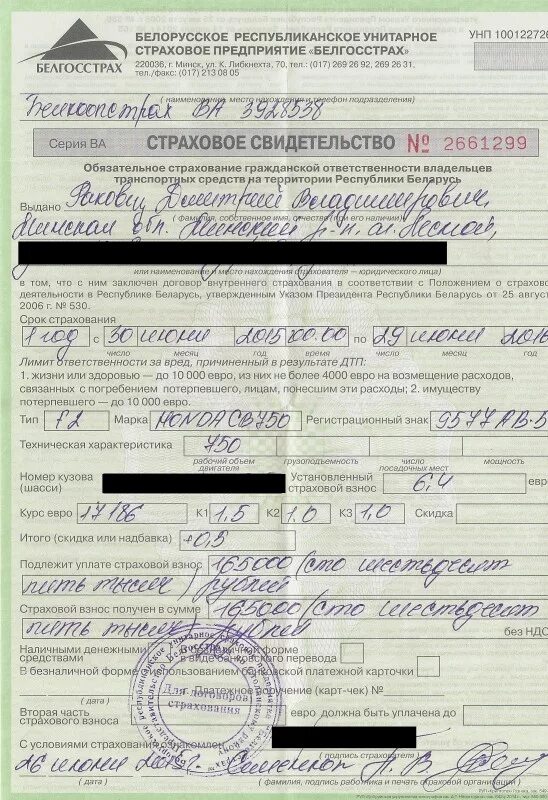 БЕЛОРУССКОЕ РЕСПУБЛИКАНСКОЕ УНИТАРНОЕ
СТРАХОВОЕ ПРЕДПРИЯТИЕ «БЕЛГОССТРАХ»
УНП 10012272
БЕЛГОССТРАХ
220036, г. Минск, ул. К. Либкнехта, 70, тел.: (017) 269 26 92, 269 26 31,
тел./факс: (017) 213 08 05
ВА 3928538
(наименование, место нахождения и телефон подразделения)
Серия ВА СТРАХОВОЕ СВИДЕТЕЛЬСТВО № 2661299
Обязательное страхование гражданской ответственности владельцев
транспортных средств на территории Республики Беларусь
Выдано Ракович Дмитрий Владимирович,
(фамилия, собственное имя, отчество (при его наличии)
Минская обл. Минский р-н, Лесной,
или наименование и место нахождения страхователя — юридического лица)
в том, что с ним заключен договор внутреннего страхования в соответствии с Положением о страхово
деятельности в Республике Беларусь, утвержденным Указом Президента Республики Беларусь от 25 август
2006 г. № 530.
Срок страхования
1 год с 30 июня 2015 00.00 по 29 июня 2016
число месяц год время число месяц год
Лимит ответственности за вред, причиненный в результате ДТП:
1. жизни или здоровью — до 10 000 евро, из них не более 4000 евро на возмещение расходов,
связанных с погребением потерпевшего, лицам, понесшим эти расходы; 2. имуществу
потерпевшего — до 10 000 евро.
Тип F2 Марка HONDA CB750 Регистрационный знак 9577 АВ-5
Техническая характеристика 750
рабочий объем двигателя грузоподъемность количество посадочных мест мощность
Номер кузова (шасси) Установленный страховой взнос 6,4 евро
Курс евро 17186 К1 1,5 К2 1.0 К3 1,0 Скидка
Итого (скидка или надбавка) +0,5
Подлежит уплате страховой взнос 165000 (сто шестьдесят
пять тысяч) рублей
Страховой взнос получен в сумме 165000 (сто шестьдесят
пять тысяч) рублей без НДС
Наличными денежными средствами В безналичной форме в виде банковского перевода
В безналичной форме с использованием банковской платежной карточки
Платежное поручение (карт-чек) №
(дата)
Для договоров
страхования
Вторая часть страхового взноса евро должна быть уплачена до
(дата)
С условиями страхования ознакомлен
(подпись страхователя)
26 июня
(дата) (фамилия, подпись работника и печать страховой организации)